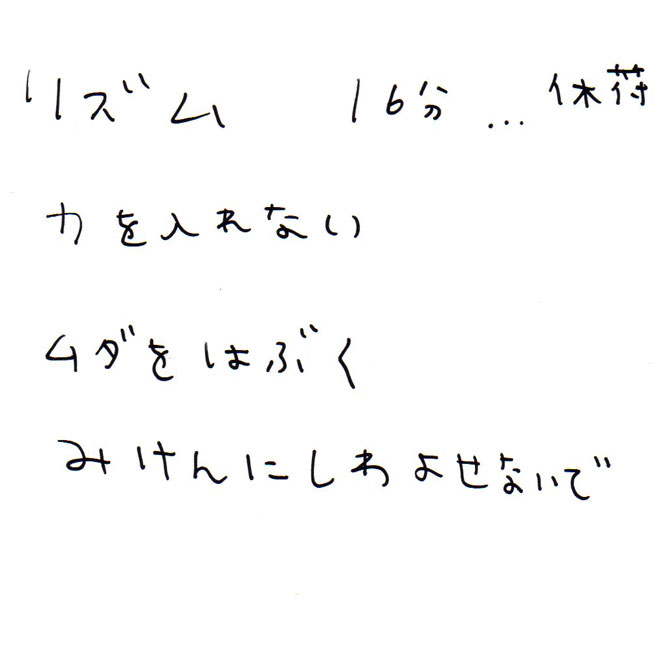 リズム 16分 … 休符
力を入れない
ムダをはぶく
みけんにしわよせないで